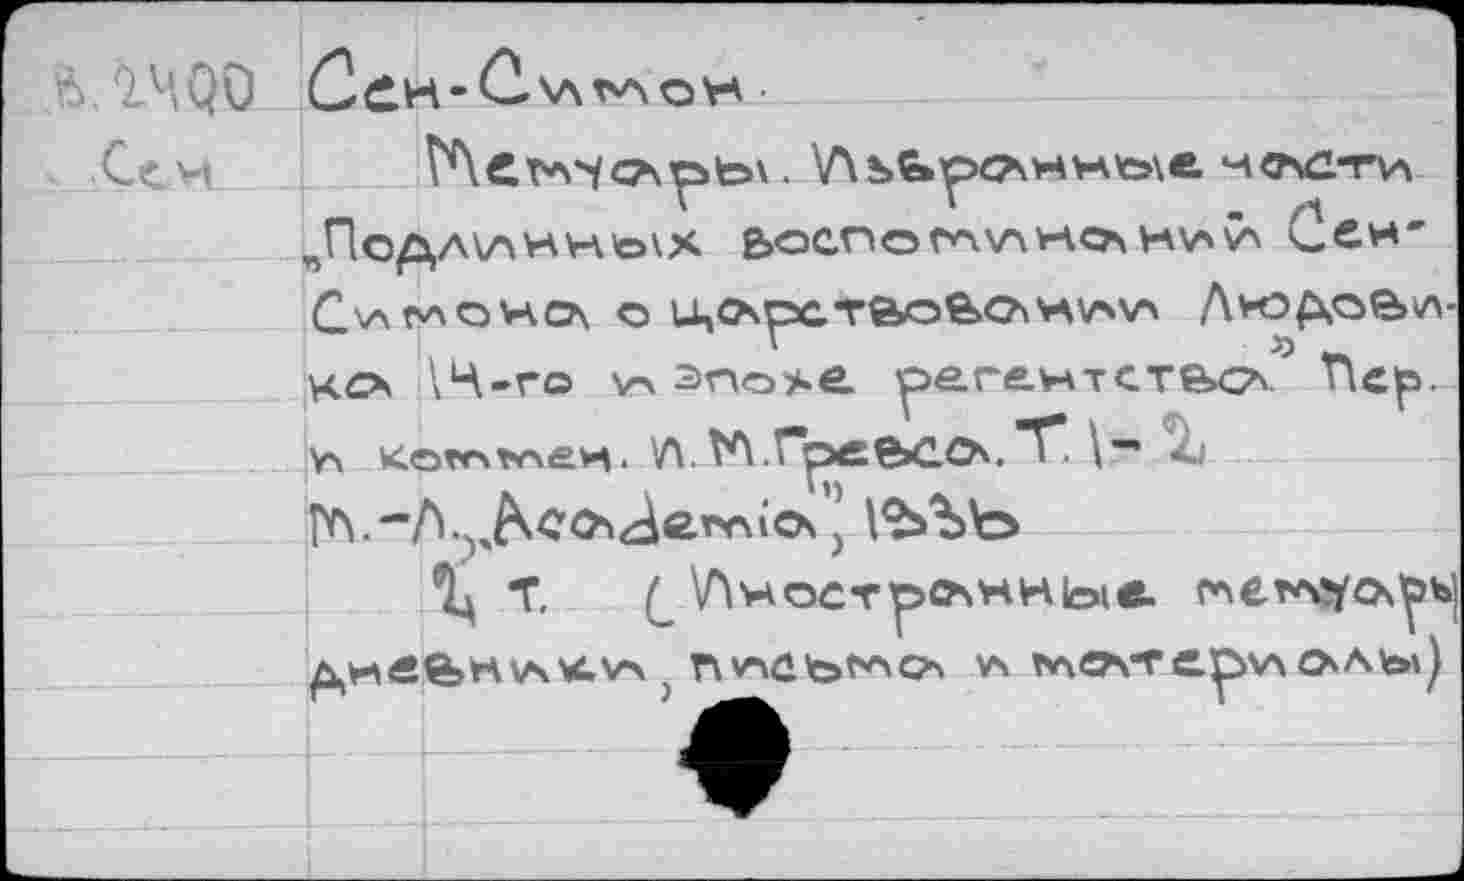 В.2490 Сен-Симон.
Сен Мемуары. Избранные части
„Подлинных воспоминаний Сен-
Симона о царствовании Людови-
ка 14-го и эпохе регентства" Пер.
и коммен. И.М.Гревса. Т. 1-2,
М.-Л. „Academia", 1936
2 т. (Иностранные мемуары
дневники, письма и материалы)